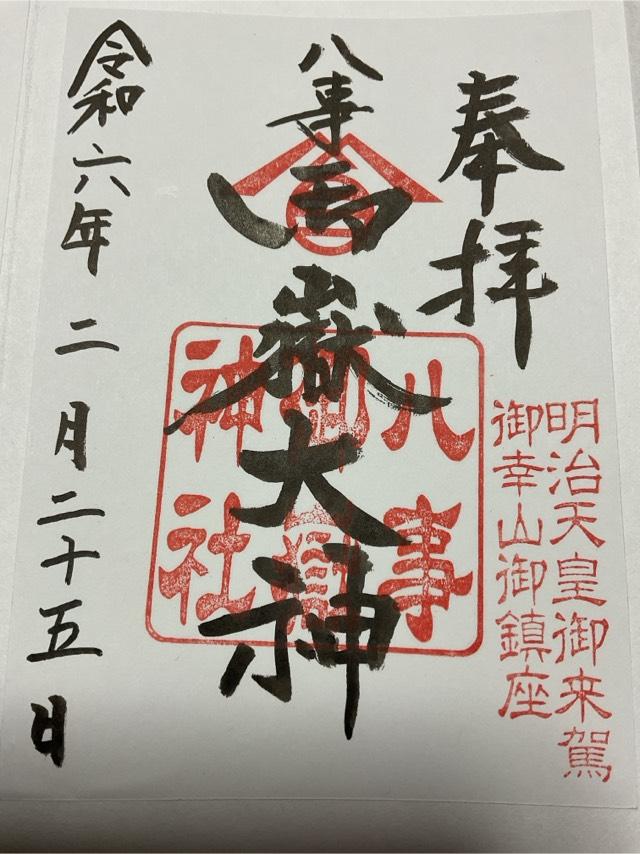 奉拝
明治天皇御来駕
御幸山御鎮座
八事
御嶽大神
八事
御嶽
神社
令和六年二月二十五日